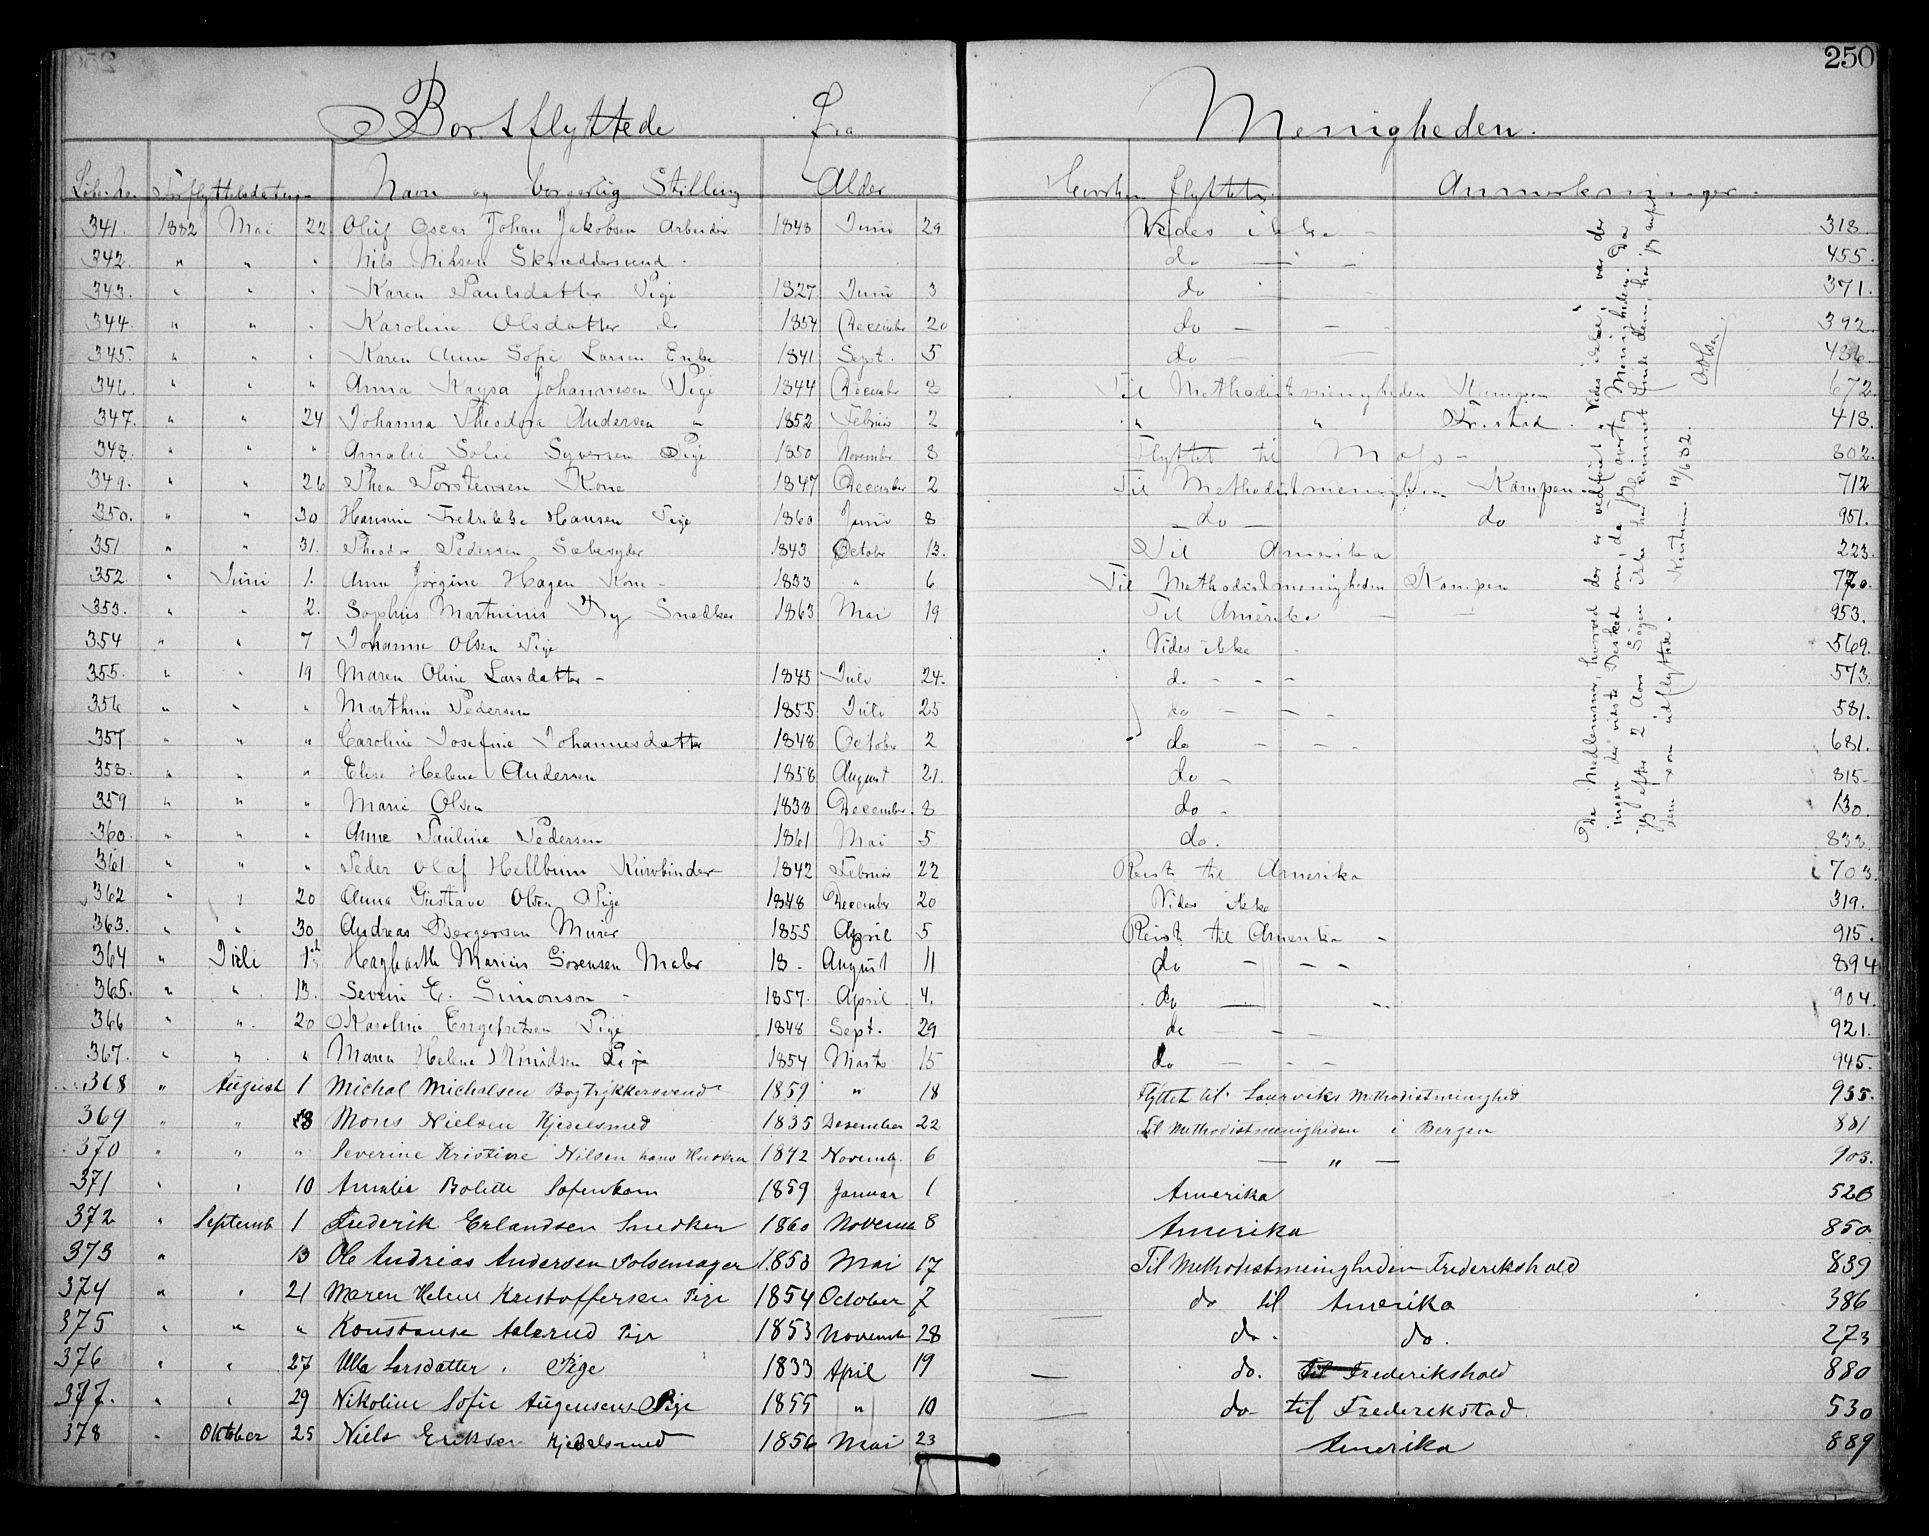 250
Bortflyttede fra Menigheden.
Löbe No Forflyttelsdatum Navn og borgerlig Stilling Alder Hvorhen flyttet Anmærkninger.
341. 1882 Mai 22 Oluf Oscar Johan Jakobsen Arbeider 1848 Juni 29 Vides ikke 318.
342. " " " Nils Nilsen Skreddersvend. do 455.
343. " " " Karen Paulsdatter Pige 1827 Juni 3 do 371.
344. " " " Karoline Olsdatter do 1854 December 20 do 392.
345. " " " Karen Anne Sofie Larsen Enke 1841 Sept. 5 do 436.
346. " " " Anna Kaysa Johannesen Pige 1844 December 8 Til Methodistmenigheden Kampen 672.
347. " " 24 Johanna Theodora Andersen " 1852 Februar 2 " " Fr.stad. 418.
348. " " " Amalie Sofie Syversen Pige 1850 November 8 Flyttet til Moss 802.
349. " " 26 Thea Torstensen Kone 1847 December 2 Til Methodistmenigheden Kampen 712
350. " " 30 Hansine Fredrikke Hansen Pige 1860 Juni 8 do do 951.
351 " " 31. Theodor Pedersen Sæbesyder 1843 October 13. Til Amerika 223.
352. " Juni 1. Anne Jörgine Hagen Kone 1833 " 6 Til Methodistmenigheden Kampen 770.
353. " " 2. Sophus Martinius Fry Snedker 1863 Mai 19 Til Amerika 953.
354 " " 7 Johanne Olsen Pige Vides ikke 569.
355. " " 19 Maren Oline Larsdatter 1845 Juli 24. do 573.
356 " " " Marthin Pedersen 1855 Juli 25 do 581.
357 " " " Caroline Josefine Johannesdatter 1848 October 2 do 681.
358. " " " Elise Helene Andersen 1858 August 21. do 815
359 " " " Marie Olsen 1838 December. 8 do 130.
360. " " " Anne Pauline Pedersen 1861 Mai 5 do. 833
361 " " " Peder Olaf Hellbum Kurvbinder 1842 Februar 22 Reist til Amerika 703.
362 " " 20 Anna Gustava Olsen Pige 1848 December 20 Vides ikke 319.
363. " " 30 Andreas Bergersen Murer 1855 April 5 Reist til Amerika 915.
364 " Juli 1 Hagbarth Marius Sörensen Maler 18 - August 11 do 894
365. " " 13. Severin E. Simonson 1857. April 4. do 904.
366 " " 20 Karoline Engebretsen Pige 1848 Sept. 29 do 921.
367. " " " Maren Helene Knudsen Pige 1854 Marts 15 do 945.
368 " August 1 Michal Michalsen Bogtrykkersvend 1859 " 18 Flyttet til Laurviks Methodistmenighed 935.
369 " " 8 Mons Nielsen Kjedelsmed 1835 Desember 22 Til Methodistmenigheden i Bergen 881
370 " " " Severine Kristine Nilsen hans Hustru 1842 Novemb. 6 " 903.
371 " " 10 Amalie Bolette 1859 Januar 1 Amerika 526
372 " Septemb 1 Frederik Erlandsen Snedker 1860 Novemb 8 Amerika 850
373 " 13 Ole Andrias Andersen Polsemager 1853 Mai 17 Til Methodistmenigheden Frederikshald 839
374 " " 21 Maren Helene Kristoffersen Pige 1854 October 7 do til Amerika 386
375 " " " Konstanse Pige 1853 Novemb 28 do. do. 273
376 " " 27 Ulla Larsdatter. Pige 1833 April 19 do. Til Frederikshald 880
377. " " 29 Nikoline Sofie Augensens Pige 1855 " 10 do til Frederikstad. 530
378 " Oktober 25 Niels Eriksen Kjedelsmed 1856 Mai 23 Amerika 889
De Medlemmer, hvorved der er vedföiet "Vides ikke", var der
ingen der vidste Besked om, da jeg overtog Menigheden. Da
jeg efter 2 Aars Sögen ikke har kunnet finde dem, har jeg opfört
dem som udflyttede.
Kristiania 19/6 82.
A. Olsen